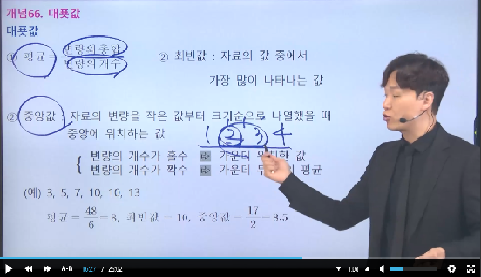 개념66. 대푯값
대푯값
① 평균 = 변량의 총합 / 변량의 개수
② 최빈값 : 자료의 값 중에서
가장 많이 나타나는 값
② 중앙값 : 자료의 변량을 작은 값부터 크기순으로 나열했을 때
중앙에 위치하는 값
1 2 3 4
변량의 개수가 홀수 가운데 위치한 값
변량의 개수가 짝수 가운데 평균
(예) 3, 5, 7, 10, 10, 13
평균 = 48/6 = 8, 최빈값 = 10, 중앙값 = 17/2 = 8.5
A-B